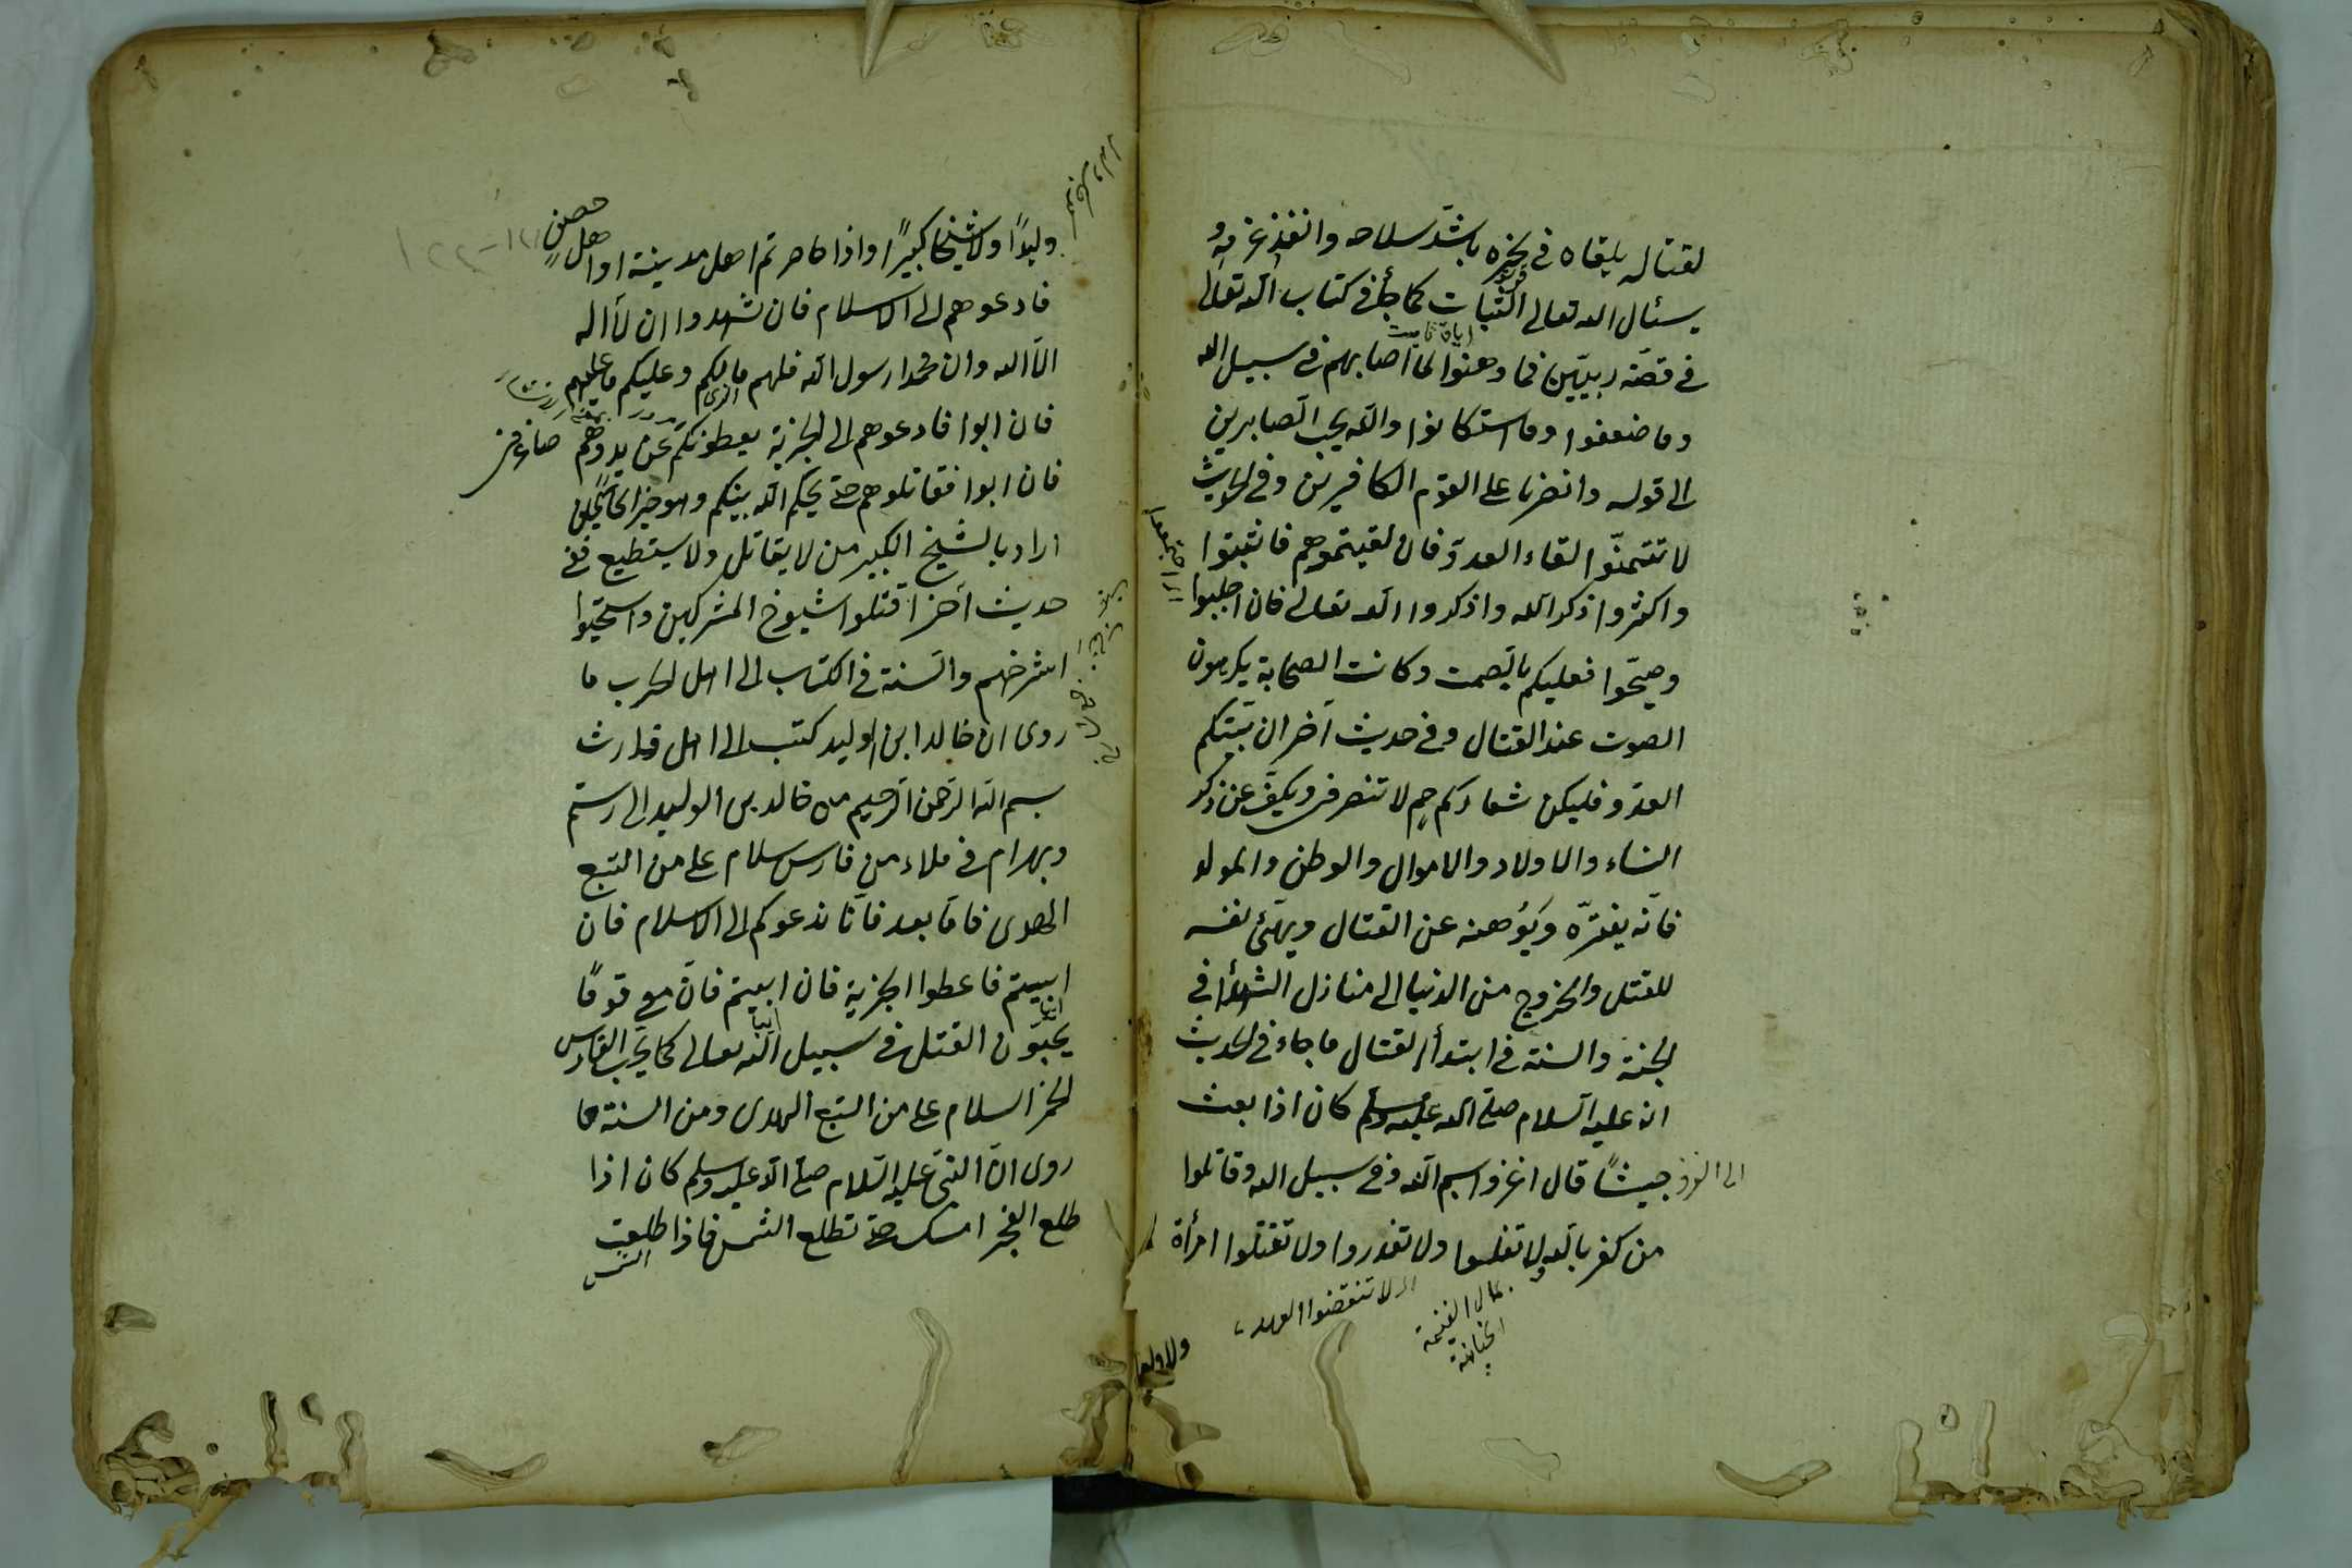 لقتاله يلقاه في نحره باشدّ سلاحه وانفذ عزمه و
يسئال الله تعالى الثبات كما جاء في كتاب الله تعالى
في قصّة ربيّين فما وهنوا لما اصابهم في سبيل الله
وما ضعفوا وما استكانوا والله يحب الصابرين
الى قوله وانصرنا على القوم الكافرين وفي الحديث
لا تتمنّوا لقاء العدوّ فان لقيتموهم فاثبتوا
واكثروا ذكر الله واذكروا الله تعالى فان اجلبوا
وصيّحوا فعليكم بالصمت وكانت الصحابة يكرهون
الصوت عند القتال وفي حديث آخر ان بيّتكم
العدوّ فليكن شعاركم حم لا تنصرون ويكفّ عن ذكر
النساء والاولاد والاموال والوطن والمولد
فانّه يفترّه ويوهنه عن القتال ويهيّئ نفسه
للقتل والخروج من الدنيا الى منازل الشهداء في
الجنة والسنة في ابتداء القتال ما جاء في الحديث
انه عليه السلام صلى الله عليه وسلم كان اذا بعث
جيشًا قال اغزوا بسم الله وفي سبيل الله وقاتلوا
من كفر بالله ولا تغلوا ولا تغدروا ولا تقتلوا امرأة
الى الغزو
لا تنقضوا العهد
الغنيمة
الخيانة
وليدًا ولا شيخًا كبيرًا واذا حاصرتم اهل مدينة او اهل حصن
فادعوهم الى الاسلام فان شهدوا ان لا اله
الا الله وان محمدا رسول الله فلهم ما لكم وعليكم ما عليهم
فان ابوا فادعوهم الى الجزية يعطونكم عن يد وهم صاغرون
فان ابوا فقاتلوهم حتى يحكم الله بينكم وهو خير الحاكمين
اراد بالشيخ الكبير من لا يقاتل ولا يستطيع ففي
حديث آخر اقتلوا شيوخ المشركين واستحيوا
شرخهم والسنة في الكتاب الى اهل الحرب ما
روى ان خالد ابن الوليد كتب الى اهل فارث
بسم الله الرحمن الرحيم من خالد بن الوليد الى رستم
وبهرام في ملاء من فارس سلام على من اتبع
الهدى فامّا بعد فانّا ندعوكم الى الاسلام فان
ابيتم فاعطوا الجزية فان ابيتم فانّ معي قومًا
يحبّون القتل في سبيل الله تعالى كما يحبّ الفارس
الخمر السلام على من اتبع الهدى ومن السنة ما
روى انّ النبي عليه السلام صلى الله عليه وسلم كان اذا
طلع الفجر امسك حتى تطلع الشمس فاذا طلعت
الشمس